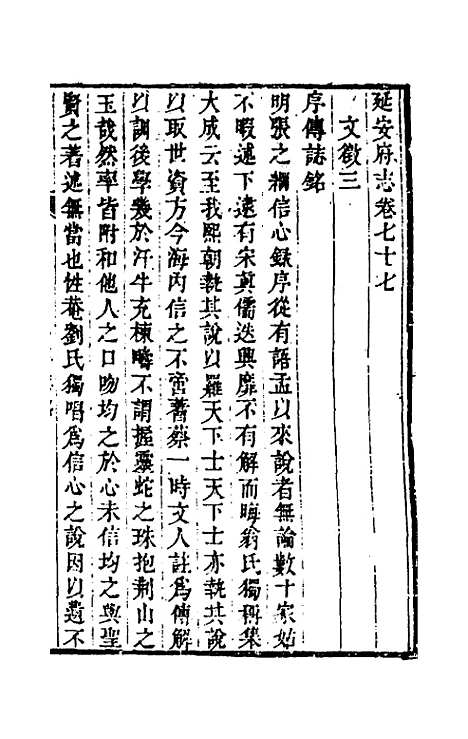 延安府志卷七十七
文徵三
序傳誌銘
明張之綱信心錄序從有語孟以來說者無論數十家姑
不暇述下逮有宋眞儒迭興靡不有解而晦翁氏獨稱集
大成云至我熙朝執其說以羅天下士天下士亦執其說
以取世資方今海內信之不啻蓍蔡一時文人註爲傳解
以詔後學幾於汗牛充棟疇不謂握靈蛇之珠抱荆山之
玉哉然率皆附和他人之口吻均之於心未信均之與聖
賢之著述無當也性菴劉氏獨唱爲信心之說因以遺不